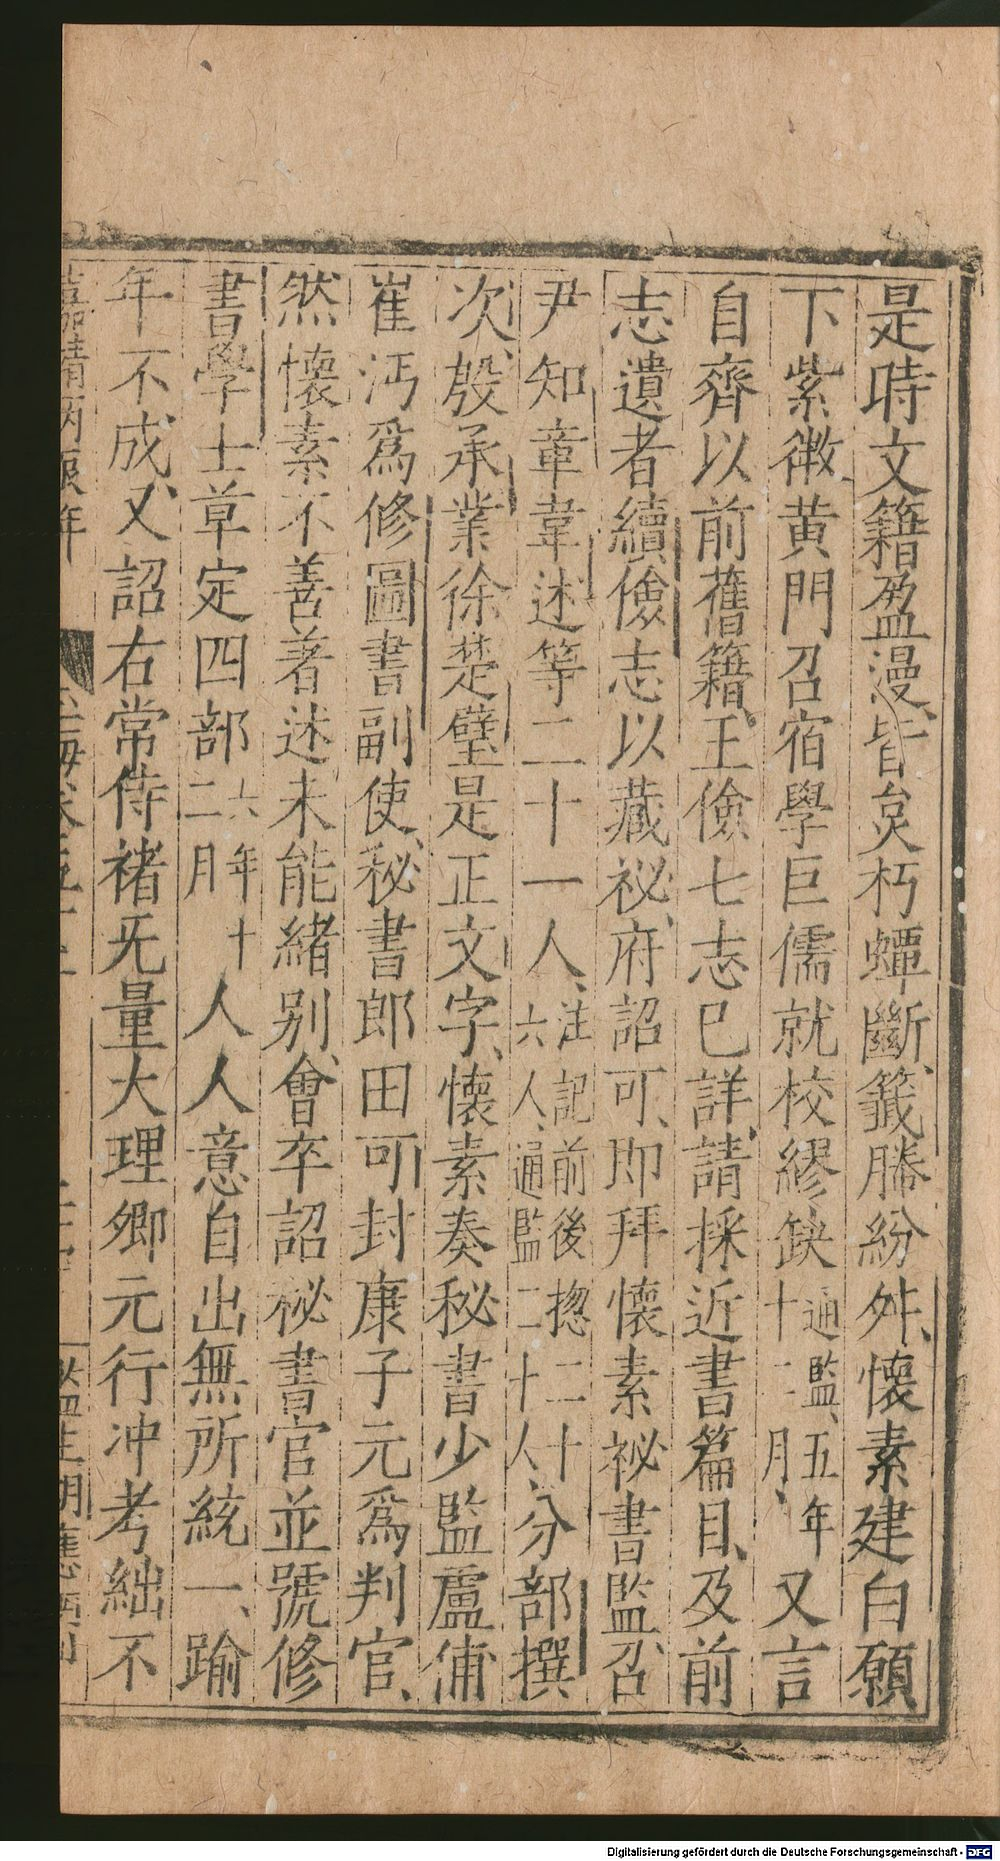 是時文籍盈漫、皆炱朽蟫斷、籤縢紛舛、懷素建白願
下紫微黄門召宿學巨儒就校繆缺通監、五年十二月、又言
自齊以前舊籍、王儉七志已詳、請採近書篇目、及前
志遺者續儉志以藏祕府、詔可、即拜懷素祕書監、召
尹知章韋述等二十一人、注記前後揔二十六人、通監二十人、分部撰
次、殷承業徐楚璧是正文字、懷素奏秘書少監盧俌
崔沔爲修圖書副使、秘書郎田可封康子元爲判官、
然懷素不善著述未能緒别、會卒詔秘書官並號修
書學士草定四部六年十二月人人意自出無所統一、踰
年不成、又詔右常侍褚旡量大理卿元行冲考絀不
嘉靖丙辰年